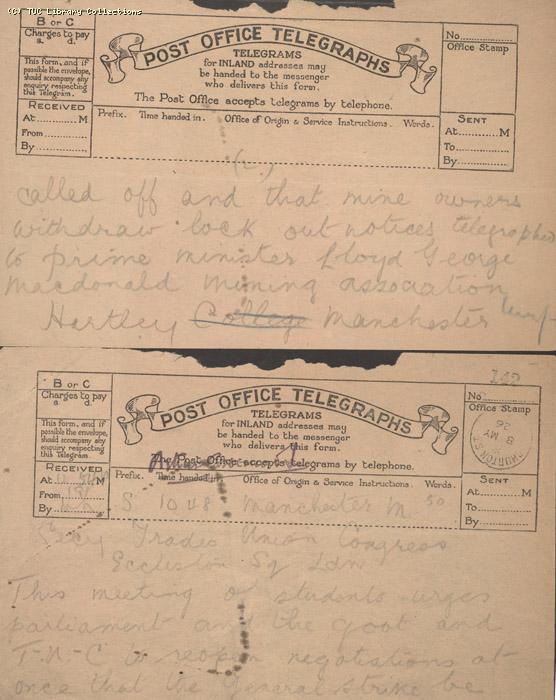 (C) TUC Library Collections
B or C
Charges to pay
s. d.
This Form, and if
possible the envelope,
should accompany any
enquiry respecting
this Telegram.
RECEIVED
At M
From
By
POST OFFICE TELEGRAPHS
TELEGRAMS
for INLAND addresses may
be handed to the messenger
who delivers this form.
The Post Office accepts telegrams by telephone.
Prefix. Time handed in. Office of Origin & Service Instructions. Words.
No
Office Stamp
SENT
At M
To
By
(2)
called off and that mine owners
withdraw lock out notices telegraphed
to prime minister Lloyd George
macdonald mining association
Hartley College Manchester
142
B or C
Charges to pay
s. d.
This Form, and if
possible the envelope,
should accompany any
enquiry respecting
this Telegram.
RECEIVED
At M
From
By
POST OFFICE TELEGRAPHS
TELEGRAMS
for INLAND addresses may
be handed to the messenger
who delivers this form.
The Post Office accepts telegrams by telephone.
Prefix. Time handed in. Office of Origin & Service Instructions. Words.
S 10 48 Manchester M 50
No
Office Stamp
8 MY
26
SENT
At M
To
By
Secy Trades Union Congress
Eccleston Sq Ldn
This meeting of students urges
parliament and the govt and
T.U.C to reopen negotiations at
once that the General Strike be